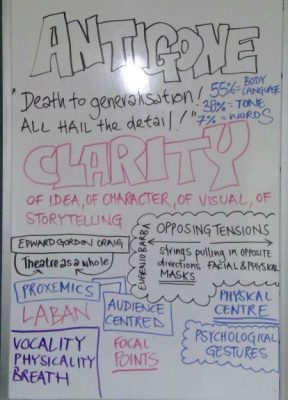 ANTIGONE
"Death to generalisation!
ALL HAIL the detail!"
55% BODY
LANGUAGE
38% = TONE
7% = WORDS
CLARITY
OF IDEA, OF CHARACTER, OF VISUAL, OF
STORYTELLING
EDWARD GORDON CRAIG
Theatre as a whole
EUGENIO BARBA
OPPOSING TENSIONS
strings pulling in OPPOSITE
directions. FACIAL & PHYSICAL
MASKS
PROXEMICS
LABAN
AUDIENCE
CENTRED
PHYSICAL
CENTRE
VOCALITY
PHYSICALITY
BREATH
FOCAL
POINTS
PSYCHOLOGICAL
GESTURES